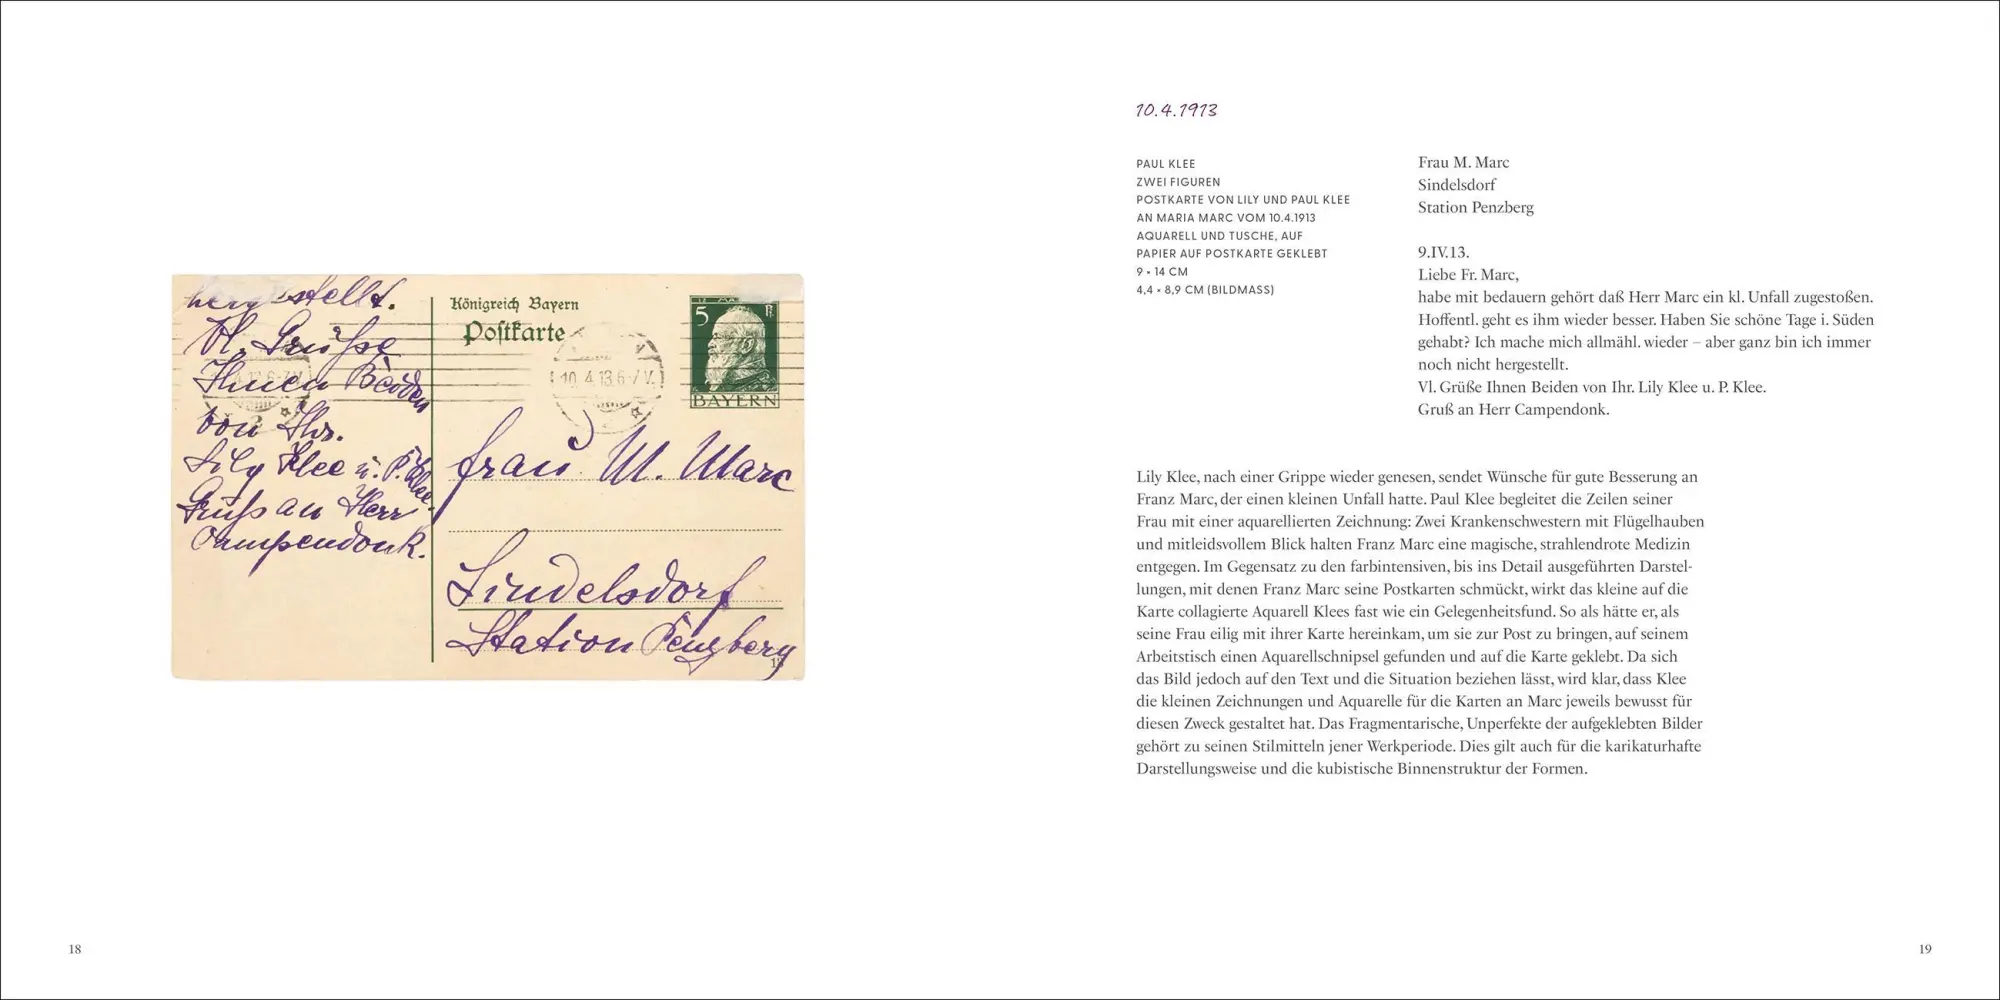 hergestellt.
Vl. Grüße
Ihnen Beiden
von Ihr.
Lily Klee u. P. Klee.
Gruß an Herr
Campendonk.
Königreich Bayern
Postkarte
5 Pf.
BAYERN
10. 4. 13. 6-7 V.
Frau M. Marc
Sindelsdorf
Station Penzberg
18
10.4.1913
PAUL KLEE
ZWEI FIGUREN
POSTKARTE VON LILY UND PAUL KLEE
AN MARIA MARC VOM 10.4.1913
AQUARELL UND TUSCHE, AUF
PAPIER AUF POSTKARTE GEKLEBT
9 × 14 CM
4,4 × 8,9 CM (BILDMASS)
Frau M. Marc
Sindelsdorf
Station Penzberg
9.IV.13.
Liebe Fr. Marc,
habe mit bedauern gehört daß Herr Marc ein kl. Unfall zugestoßen.
Hoffentl. geht es ihm wieder besser. Haben Sie schöne Tage i. Süden
gehabt? Ich mache mich allmähl. wieder – aber ganz bin ich immer
noch nicht hergestellt.
Vl. Grüße Ihnen Beiden von Ihr. Lily Klee u. P. Klee.
Gruß an Herr Campendonk.
Lily Klee, nach einer Grippe wieder genesen, sendet Wünsche für gute Besserung an
Franz Marc, der einen kleinen Unfall hatte. Paul Klee begleitet die Zeilen seiner
Frau mit einer aquarellierten Zeichnung: Zwei Krankenschwestern mit Flügelhauben
und mitleidsvollem Blick halten Franz Marc eine magische, strahlendrote Medizin
entgegen. Im Gegensatz zu den farbintensiven, bis ins Detail ausgeführten Darstel-
lungen, mit denen Franz Marc seine Postkarten schmückt, wirkt das kleine auf die
Karte collagierte Aquarell Klees fast wie ein Gelegenheitsfund. So als hätte er, als
seine Frau eilig mit ihrer Karte hereinkam, um sie zur Post zu bringen, auf seinem
Arbeitstisch einen Aquarellschnipsel gefunden und auf die Karte geklebt. Da sich
das Bild jedoch auf den Text und die Situation beziehen lässt, wird klar, dass Klee
die kleinen Zeichnungen und Aquarelle für die Karten an Marc jeweils bewusst für
diesen Zweck gestaltet hat. Das Fragmentarische, Unperfekte der aufgeklebten Bilder
gehört zu seinen Stilmitteln jener Werkperiode. Dies gilt auch für die karikaturhafte
Darstellungsweise und die kubistische Binnenstruktur der Formen.
19